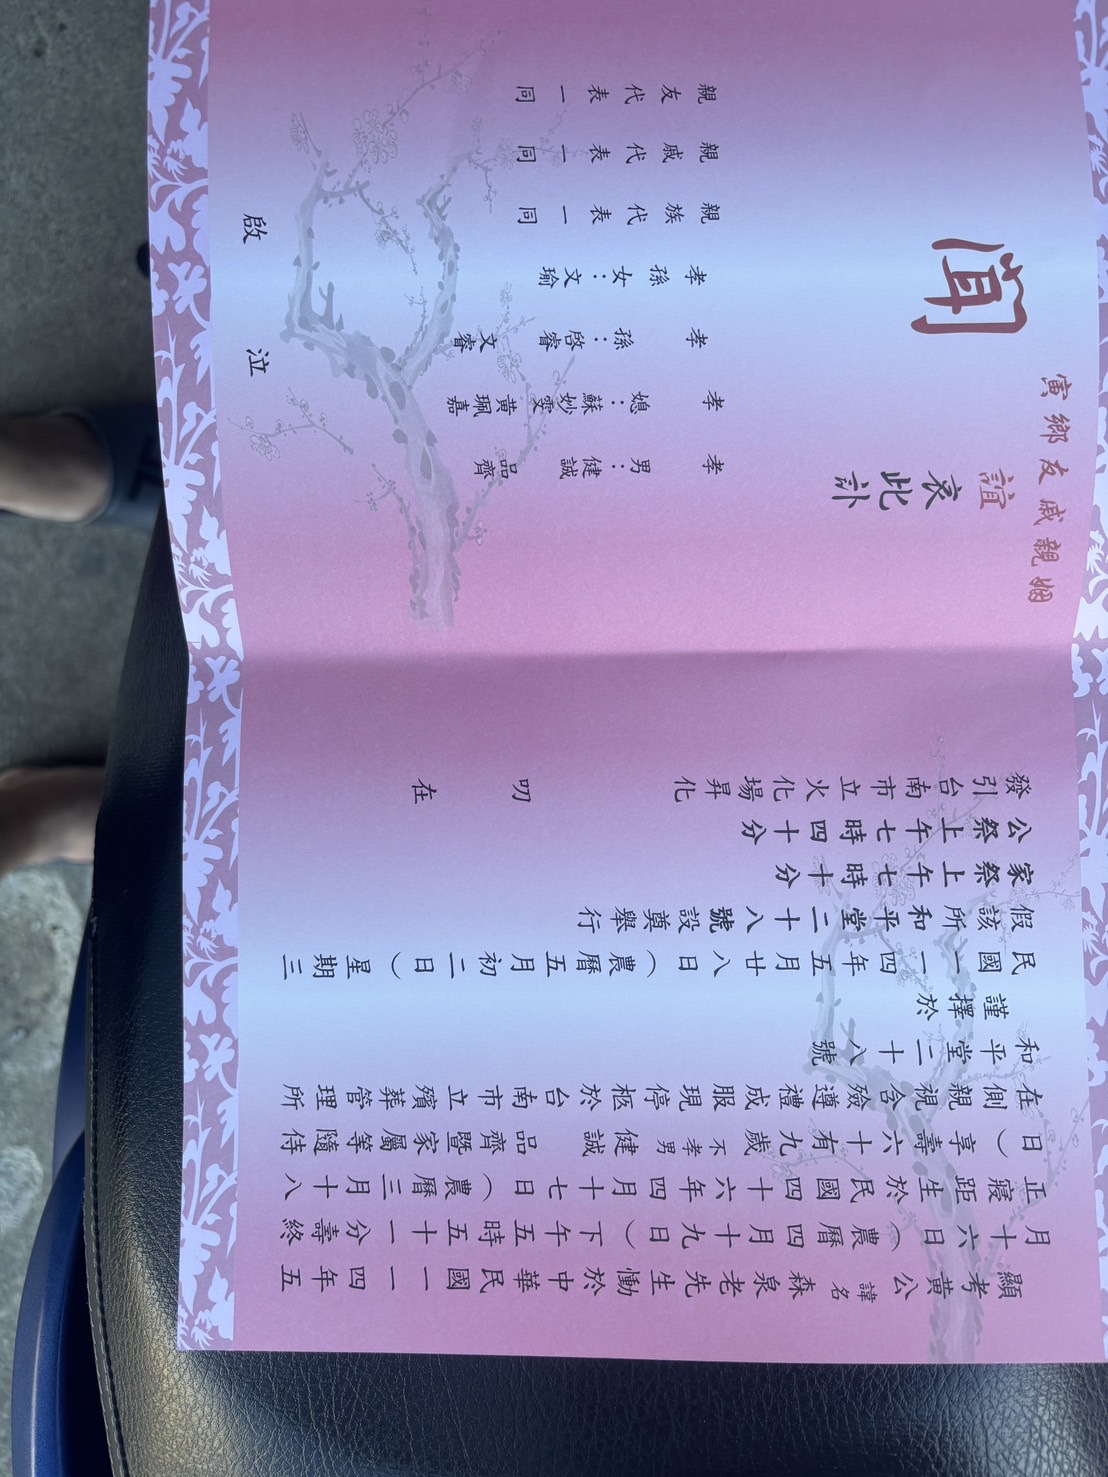 顯考黃公諱名森泉老先生慟於中華民國一一四年五
月十六日（農曆四月十九日）下午五時五十一分壽終
正寢距生於民國四十六年四月十七日（農曆三月十八
日）享壽六十有九歲不孝男健誠 品齊暨家屬等隨侍
在側親視含殮遵禮成服現停柩於台南市立殯葬管理所
和平堂二十八號
謹擇於
民國一一四年五月廿八日（農曆五月初二日）星期三
假該所和平堂二十八號設奠舉行
家祭上午七時十分
公祭上午七時四十分
發引台南市立火化場昇化 叨在
姻親戚友鄉寅
誼哀此訃
聞
孝男：健誠 品齊
孝媳：蘇妙雯 黃珮嘉
孝孫：啓睿 文睿
孝孫女：文瑜
親族代表一同
親戚代表一同
親友代表一同
泣啟